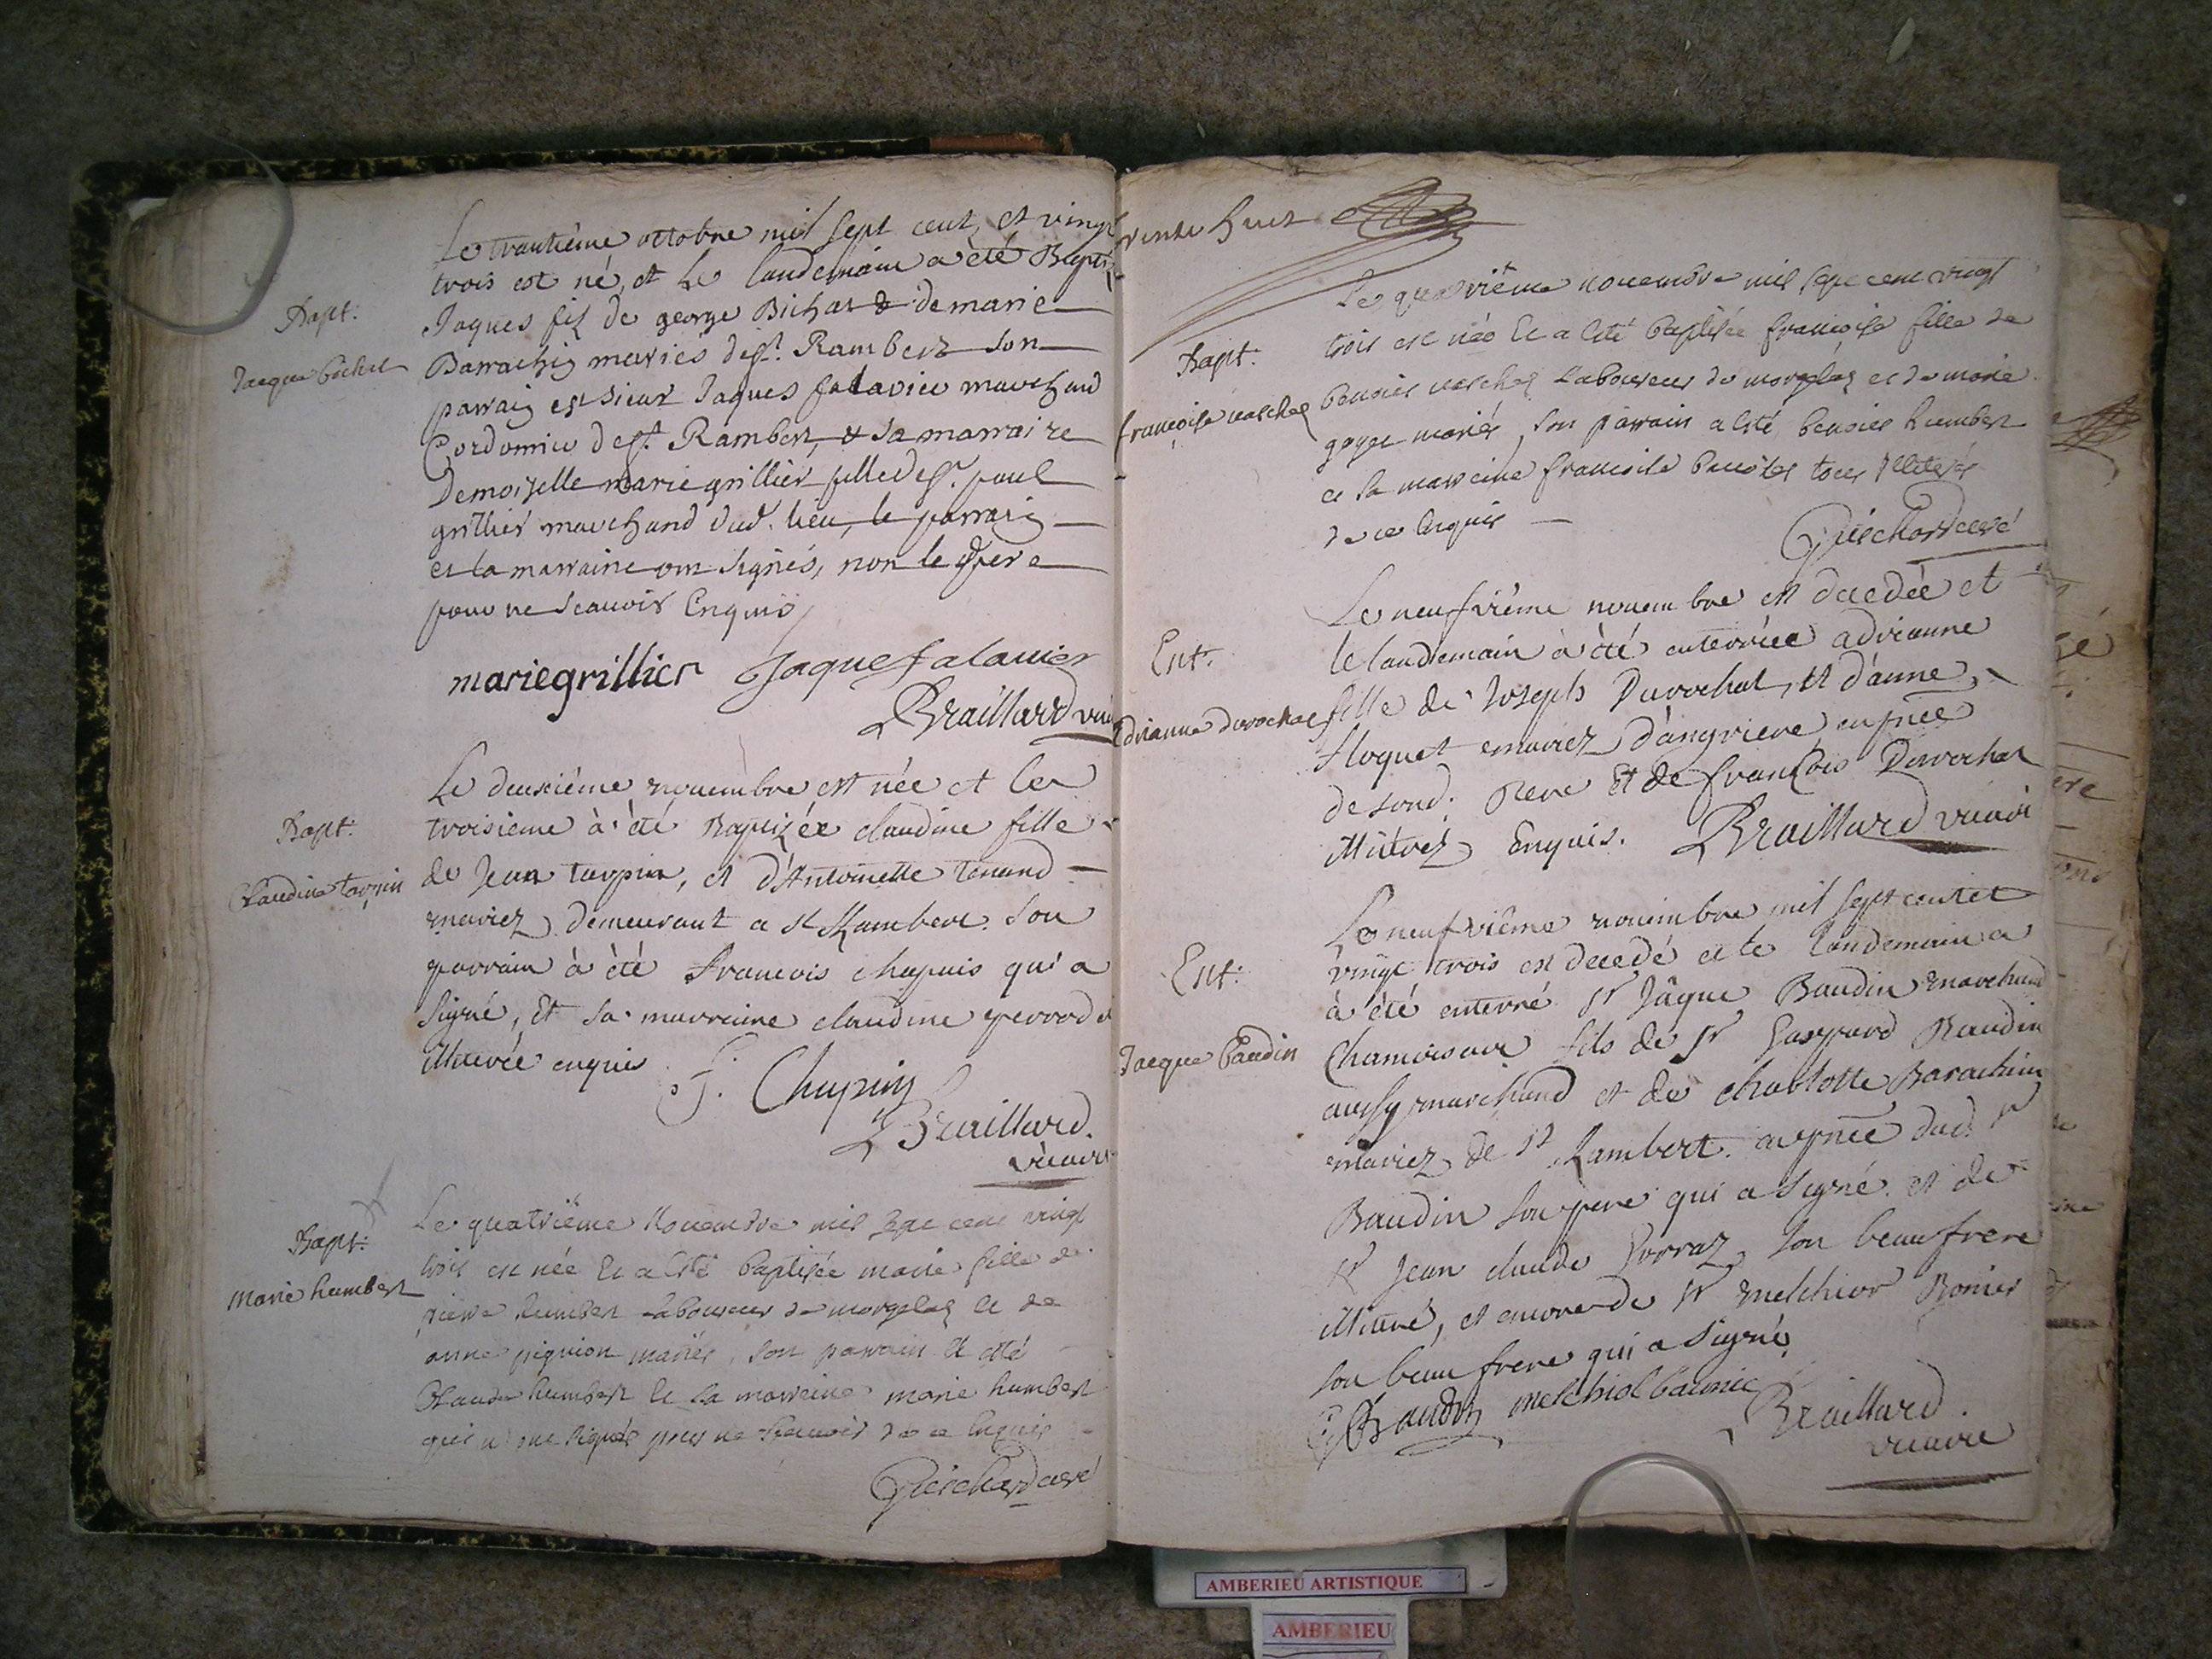 Le trantième octobre mil sept cent, et vingt
trois est né, et le landemain a été Bapti
Bapt:
Jacque Bichat
Jaques fils de george Bichat & de marie
Barrachin mariés de st. Rambert son
parrain est sieur Jaques falavier marchand
Cordonnier de st. Rambert, & sa marraine
Demoiselle marie grillier fille de sr. paul
grillier marchand dud. lieu, le parrain
et la marraine ont signés, non le père
pour ne scauoir Enquis
mariegrillier Jaque falauier
Braillard
Le deuxiéme nouembre est née et le
Bapt:
Claudine tarpin
troisieme à été Baptizée claudine fille
de Jean tarpin, et d'Antoinette tenand
mariez demeurant a st Rambert. son
parrain à été francois chapuis qui a
signé, Et sa marraine claudine perrod
illiterée enquis
f. Chapuis
Braillard.
vicaire
Bapt:
marie humbert
Le quatriéme Nouembre mil sept cent vingt
trois est née Et a Esté baptisée marie fille de
pierre humbert Laboureur de morgelas et de
anne pignion mariés, son parrain a esté
Claude humbert et sa marreine marie humbert
qui n'ont signés pour ne scauoir de ce Enquis
Guichard curé
trente huit
Le quatriéme nouembre mil sept cent vingt
Bapt:
trois est née Et a Esté baptisée francoise fille de
francoise
benoist Laboureur de morgelas et de marie
goyet mariés, son parrain a esté benoist humbert
et sa marreine francoise tous illiterés
de ce Enquis
Guichard curé
Le neufviéme nouembre est decedée et
Ent.
le landemain à été enterrée adrianne
adrianne Durochat
fille de Joseph Durochat, et d'anne
floquet mariez d'angriere en pnce
de sond. Pere Et de françois Durochat
illiterez Enquis. Braillard vicaire
Le neufviéme nouembre mil sept cent et
Ent:
vingt trois est decedé et le landemain a
à été enterré sr Jâque Baudin marchand
Jacque Baudin
Chamoiseur fils de sr Gaspard Baudin
aussy marchand et de charlotte Barachin
mariez de st Rambert. en pnce dud. sr
Baudin son pere qui a signé. et de
sr Jean claude Gorraz son beau frere
illiteré, et encore de sr melchior Bonier
son beau frere qui a signé
G Baudin melchiol
Braillard.
vicaire
AMBERIEU ARTISTIQUE
AMBERIEU